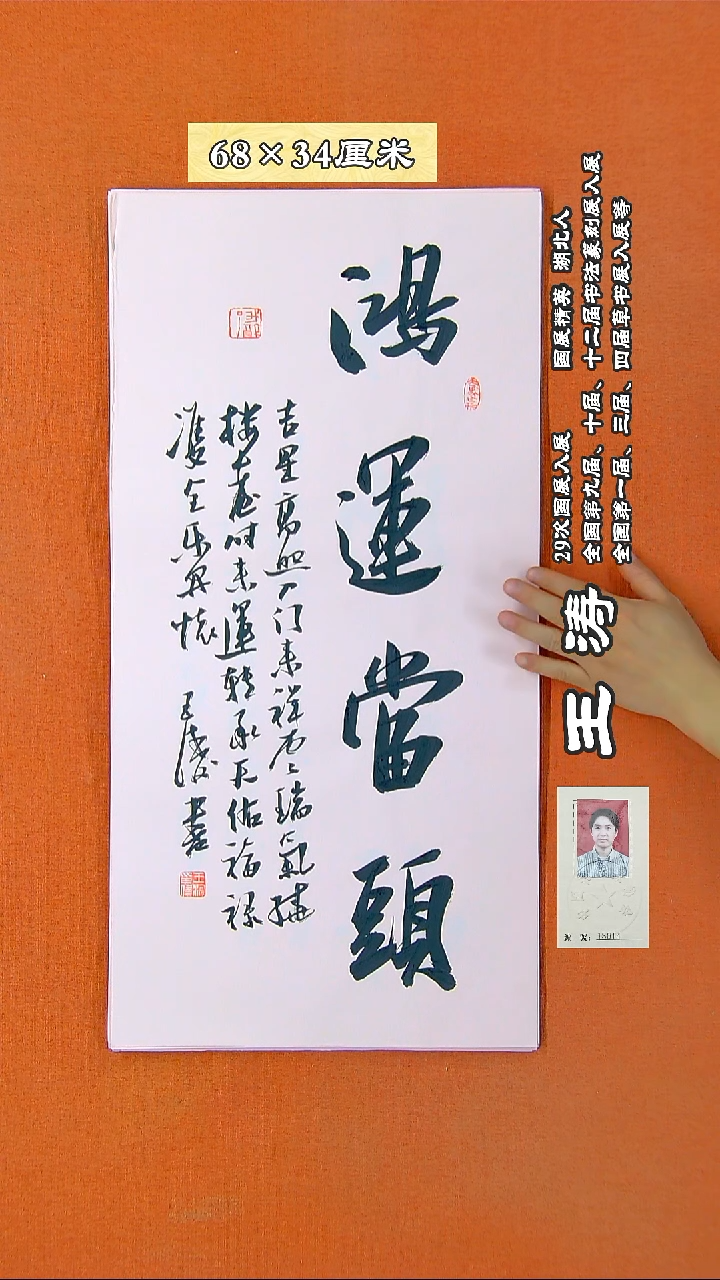 68×34厘米
鴻運當頭
吉星高照入门来祥云瑞氣繞
楼台时来運转承天佑福禄
雙全乐开怀 王涛書
29次国展入展 国展精英 湖北人
全国第九届、十届、十二届书法篆刻展入展
全国第一届、三届、四届草书展入展等
王涛